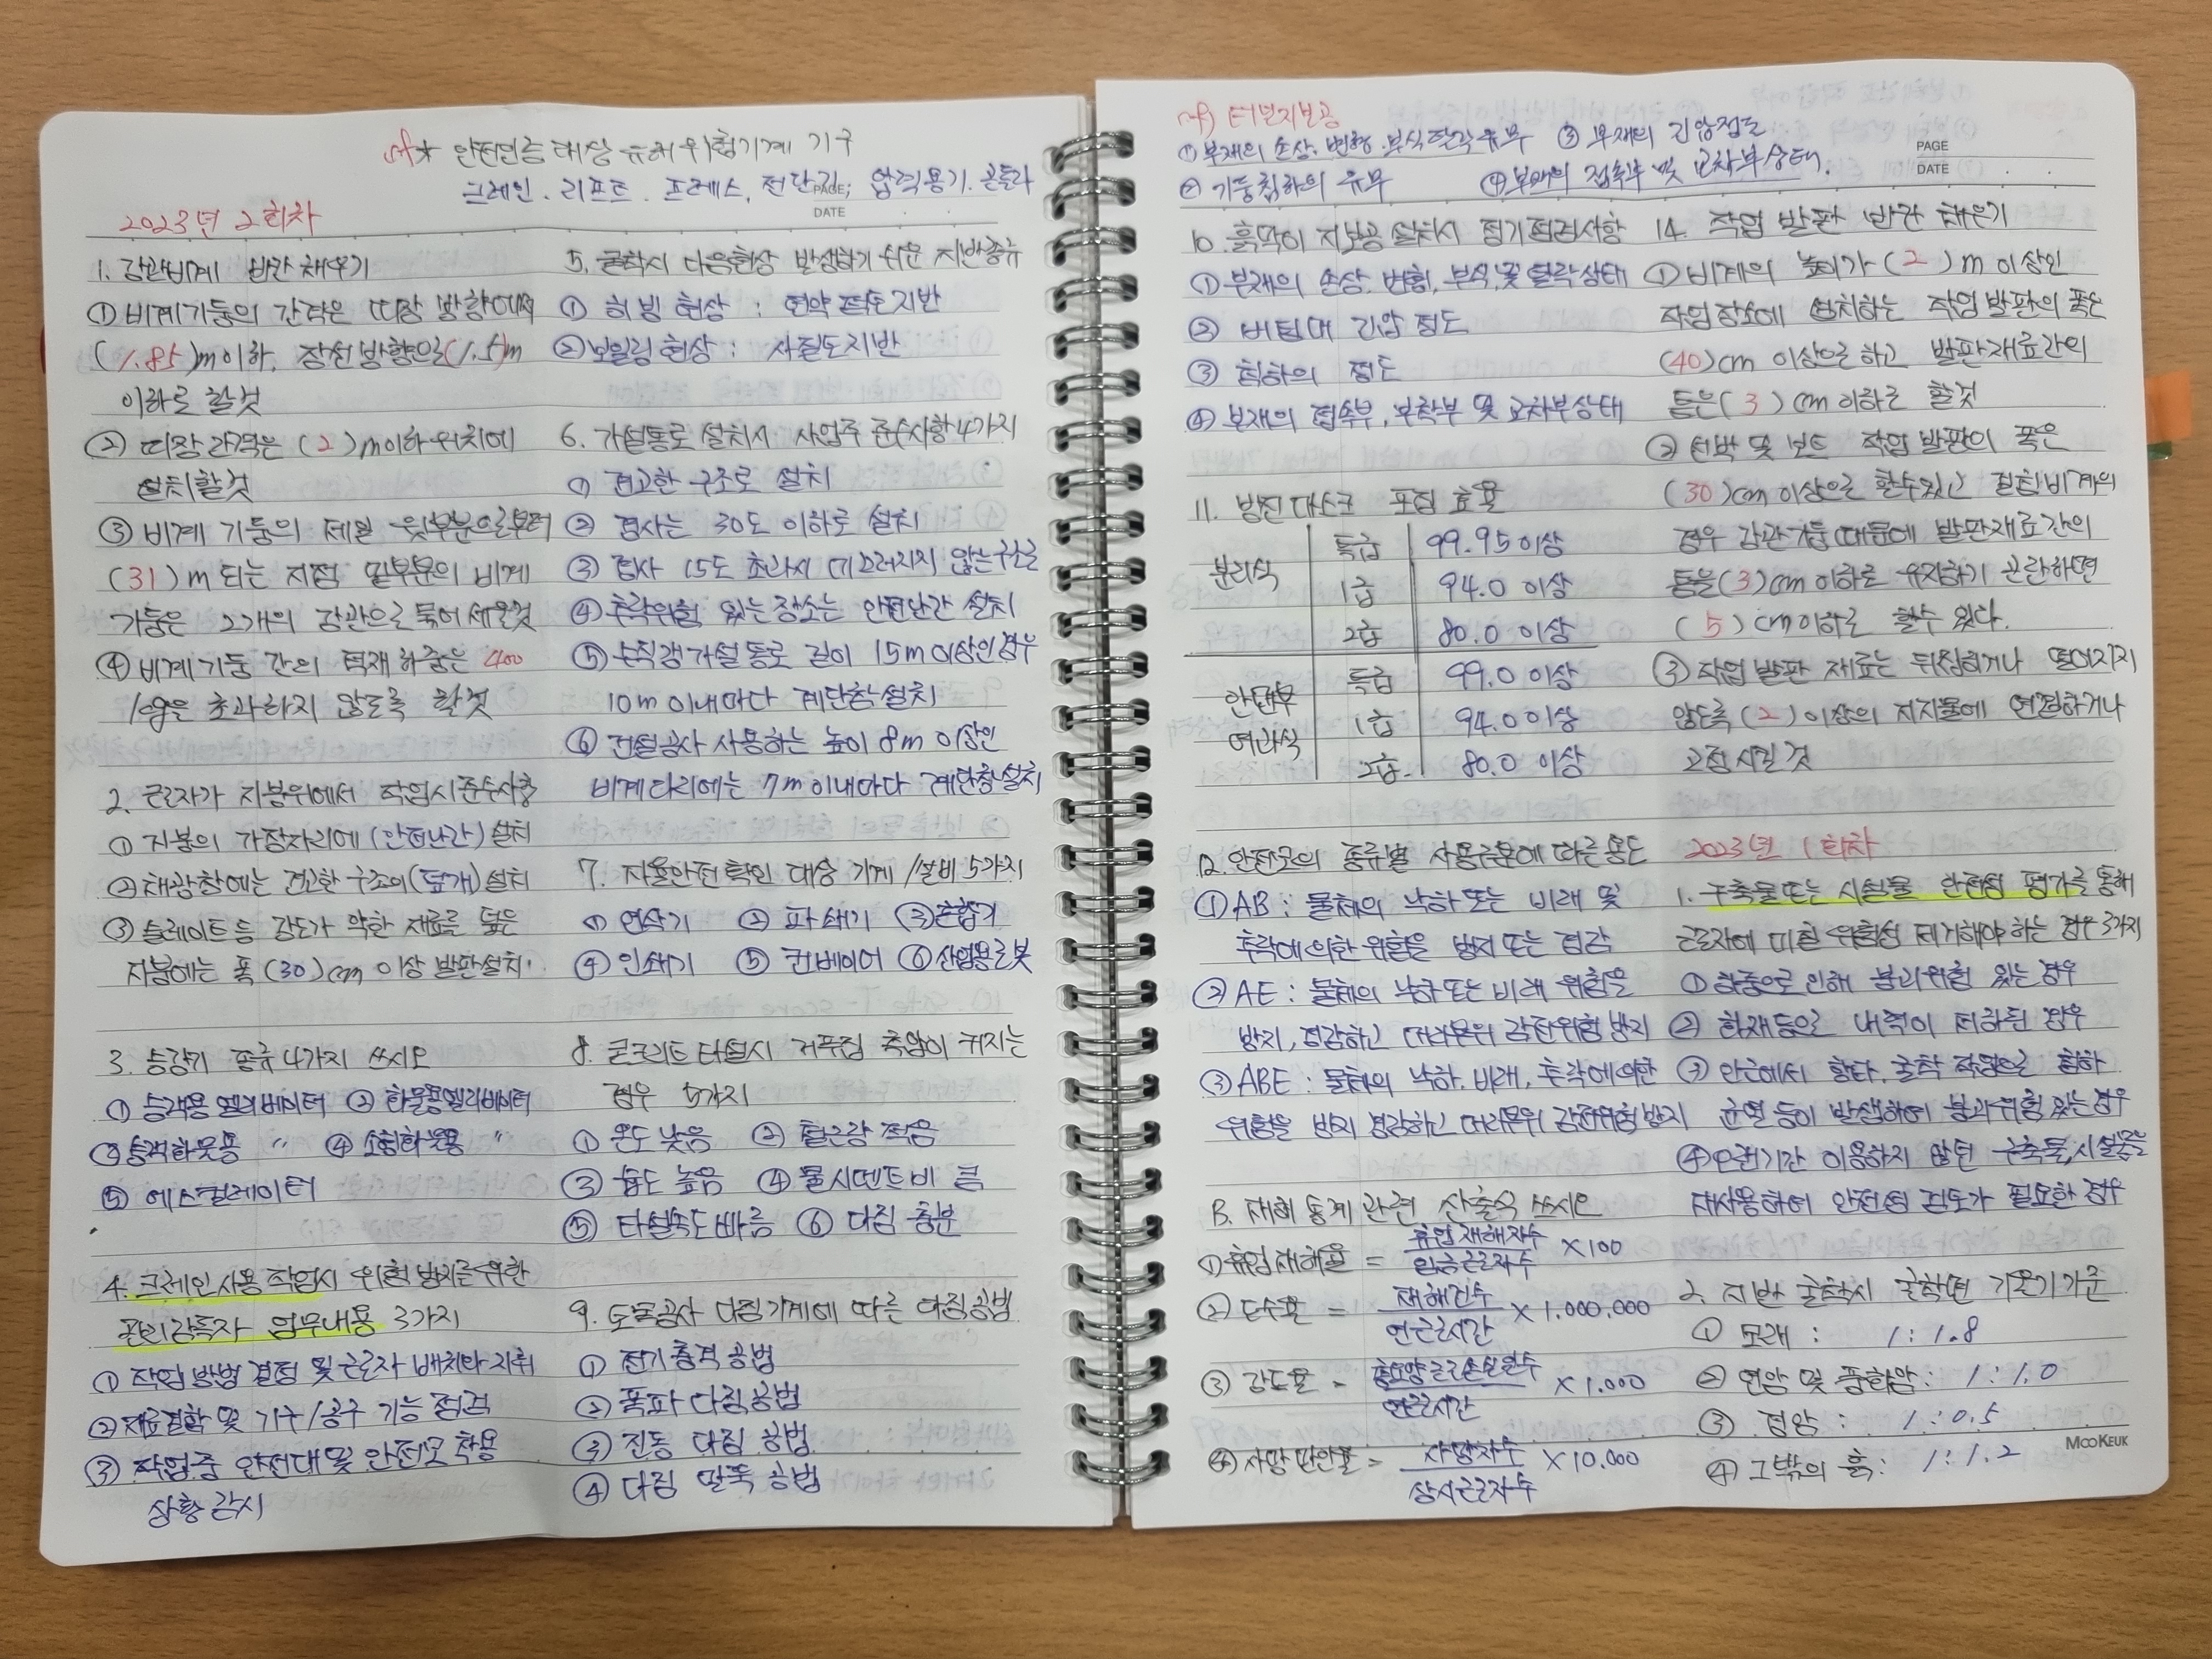 cf)* 안전인증 대상 유해위험기계 기구
크레인. 리프트. 프레스, 전단기, 압력용기. 곤돌라
PAGE
DATE
2023년 2회차
1. 강관비계 빈칸 채우기
① 비계기둥의 간격은 띠장 방향에서
(1.85)m이하, 장선방향으로(1.5)m
이하로 할것
② 띠장간격은 (2)m이하 위치에
설치할것
③ 비계 기둥의 제일 윗부분으로부터
(31)m되는 지점 밑부분의 비계
기둥은 2개의 강관으로 묶어세울것
④ 비계기둥 간의 적재하중은 400
kg을 초과하지 않도록 할것
2. 근로자가 지붕위에서 작업시 준수사항
① 지붕의 가장자리에 (안전난간) 설치
② 채광창에는 견고한 구조의 (덮개) 설치
③ 슬레이트등 강도가 약한 재료로 덮은
지붕에는 폭 (30)cm 이상 발판설치.
3. 승강기 종류 4가지 쓰시오
① 승객용 엘리베이터 ② 화물용엘리베이터
③ 승객화물용 〃 ④ 소형화물용 〃
⑤ 에스컬레이터
4. 크레인사용 작업시 위험방지를 위한
관리감독자 업무내용 3가지
① 작업방법 결정 및 근로자 배치와 지휘
② 재료결함 및 기구/공구 기능 점검
③ 작업중 안전대 및 안전모 착용
상황 감시
5. 굴착시 다음현상 발생하기 쉬운 지반종류
① 히빙 현상 : 연약 점토지반
② 보일링 현상 : 사질토지반
6. 가설통로 설치시 사업주 준수사항 4가지
① 견고한 구조로 설치
② 경사는 30도 이하로 설치
③ 경사 15도 초과시 미끄러지지 않는구조로
④ 추락위험 있는 장소는 안전난간 설치
⑤ 수직갱가설통로 길이 15m이상인경우
10m이내마다 계단참설치
⑥ 건설공사 사용하는 높이 8m 이상인
비계다리에는 7m이내마다 계단참설치
7. 자율안전확인 대상 기계/설비 5가지
① 연삭기 ② 파쇄기 ③ 혼합기
④ 인쇄기 ⑤ 컨베이어 ⑥ 산업용로봇
8. 콘크리트 타설시 거푸집 측압이 커지는
경우 5가지
① 온도 낮음 ② 철근량 적음
③ 습도 높음 ④ 물시멘트비 큼
⑤ 타설속도빠름 ⑥ 다짐 충분
9. 토목공사 다짐기계에 따른 다짐공법
① 전기 충격 공법
② 폭파 다짐 공법
③ 진동 다짐 공법
④ 다짐 말뚝 공법
cf) 터널지보공
① 부재의 손상. 변형. 부식 탈락 유무 ③ 부재의 긴압정도
② 기둥침하의 유무 ④ 부재의 접속부 및 교차부상태.
PAGE
DATE
10. 흙막이 지보공 설치시 정기점검사항
① 부재의 손상. 변형, 부식, 및 탈락상태
② 버팀대 긴압 정도
③ 침하의 정도
④ 부재의 접속부, 부착부 및 교차부상태
11. 방진마스크 포집 효율
분리식 특급 99.95이상
1급 94.0 이상
2급 80.0 이상
안면부 여과식 특급 99.0 이상
1급 94.0이상
2급. 80.0 이상
12. 안전모의 종류별 사용구분에 따른용도
① AB : 물체의 낙하 또는 비래 및
추락에의한 위험을 방지 또는 경감
② AE : 물체의 낙하 또는 비래 위험을
방지, 경감하고 머리부위 감전위험 방지
③ ABE : 물체의 낙하. 비래, 추락에의한
위험을 방지 경감하고 머리부위 감전위험방지
13. 재해 통계 관련 산출식 쓰시오
① 휴업재해율 = 휴업재해자수 / 임금근로자수 ×100
② 도수율 = 재해건수 / 연근로시간 ×1.000.000
③ 강도율 = 총요양근로손실일수 / 연근로시간 ×1.000
④ 사망만인율 = 사망자수 / 상시근로자수 ×10.000
14. 작업 발판 빈칸 채우기
① 비계의 높이가 (2)m 이상인
작업장소에 설치하는 작업발판의 폭은
(40)cm 이상으로 하고 발판재료간의
틈은(3)cm이하로 할것
② 선박 및 보트 작업발판의 폭은
(30)cm이상으로 할수있고 걸침비계의
경우 강관기둥 때문에 발판재료간의
틈을(3)cm이하로 유지하기 곤란하면
(5)cm이하로 할수 있다.
③ 작업 발판 재료는 뒤집히거나 떨어지지
않도록 (2)이상의 지지물에 연결하거나
고정시킬것
2023년 1회차
1. 구축물또는 시설물 안전성 평가를 통해
근로자에 미칠 위험성 제거해야 하는 경우 3가지
① 하중으로 인해 붕괴위험 있는 경우
② 화재등으로 내력이 저하된 경우
③ 인근에서 항타, 굴착 작업으로 침하
균열 등이 발생하여 붕괴위험 있는경우
④ 오랜기간 이용하지 않던 구축물,시설물을
재사용하여 안전성 검토가 필요한 경우
2. 지반 굴착시 굴착면 기울기 기준
① 모래 : 1:1.8
② 연암 및 풍화암 : 1:1.0
③ 경암 : 1:0.5
④ 그밖의 흙 : 1:1.2
MOOKEUK